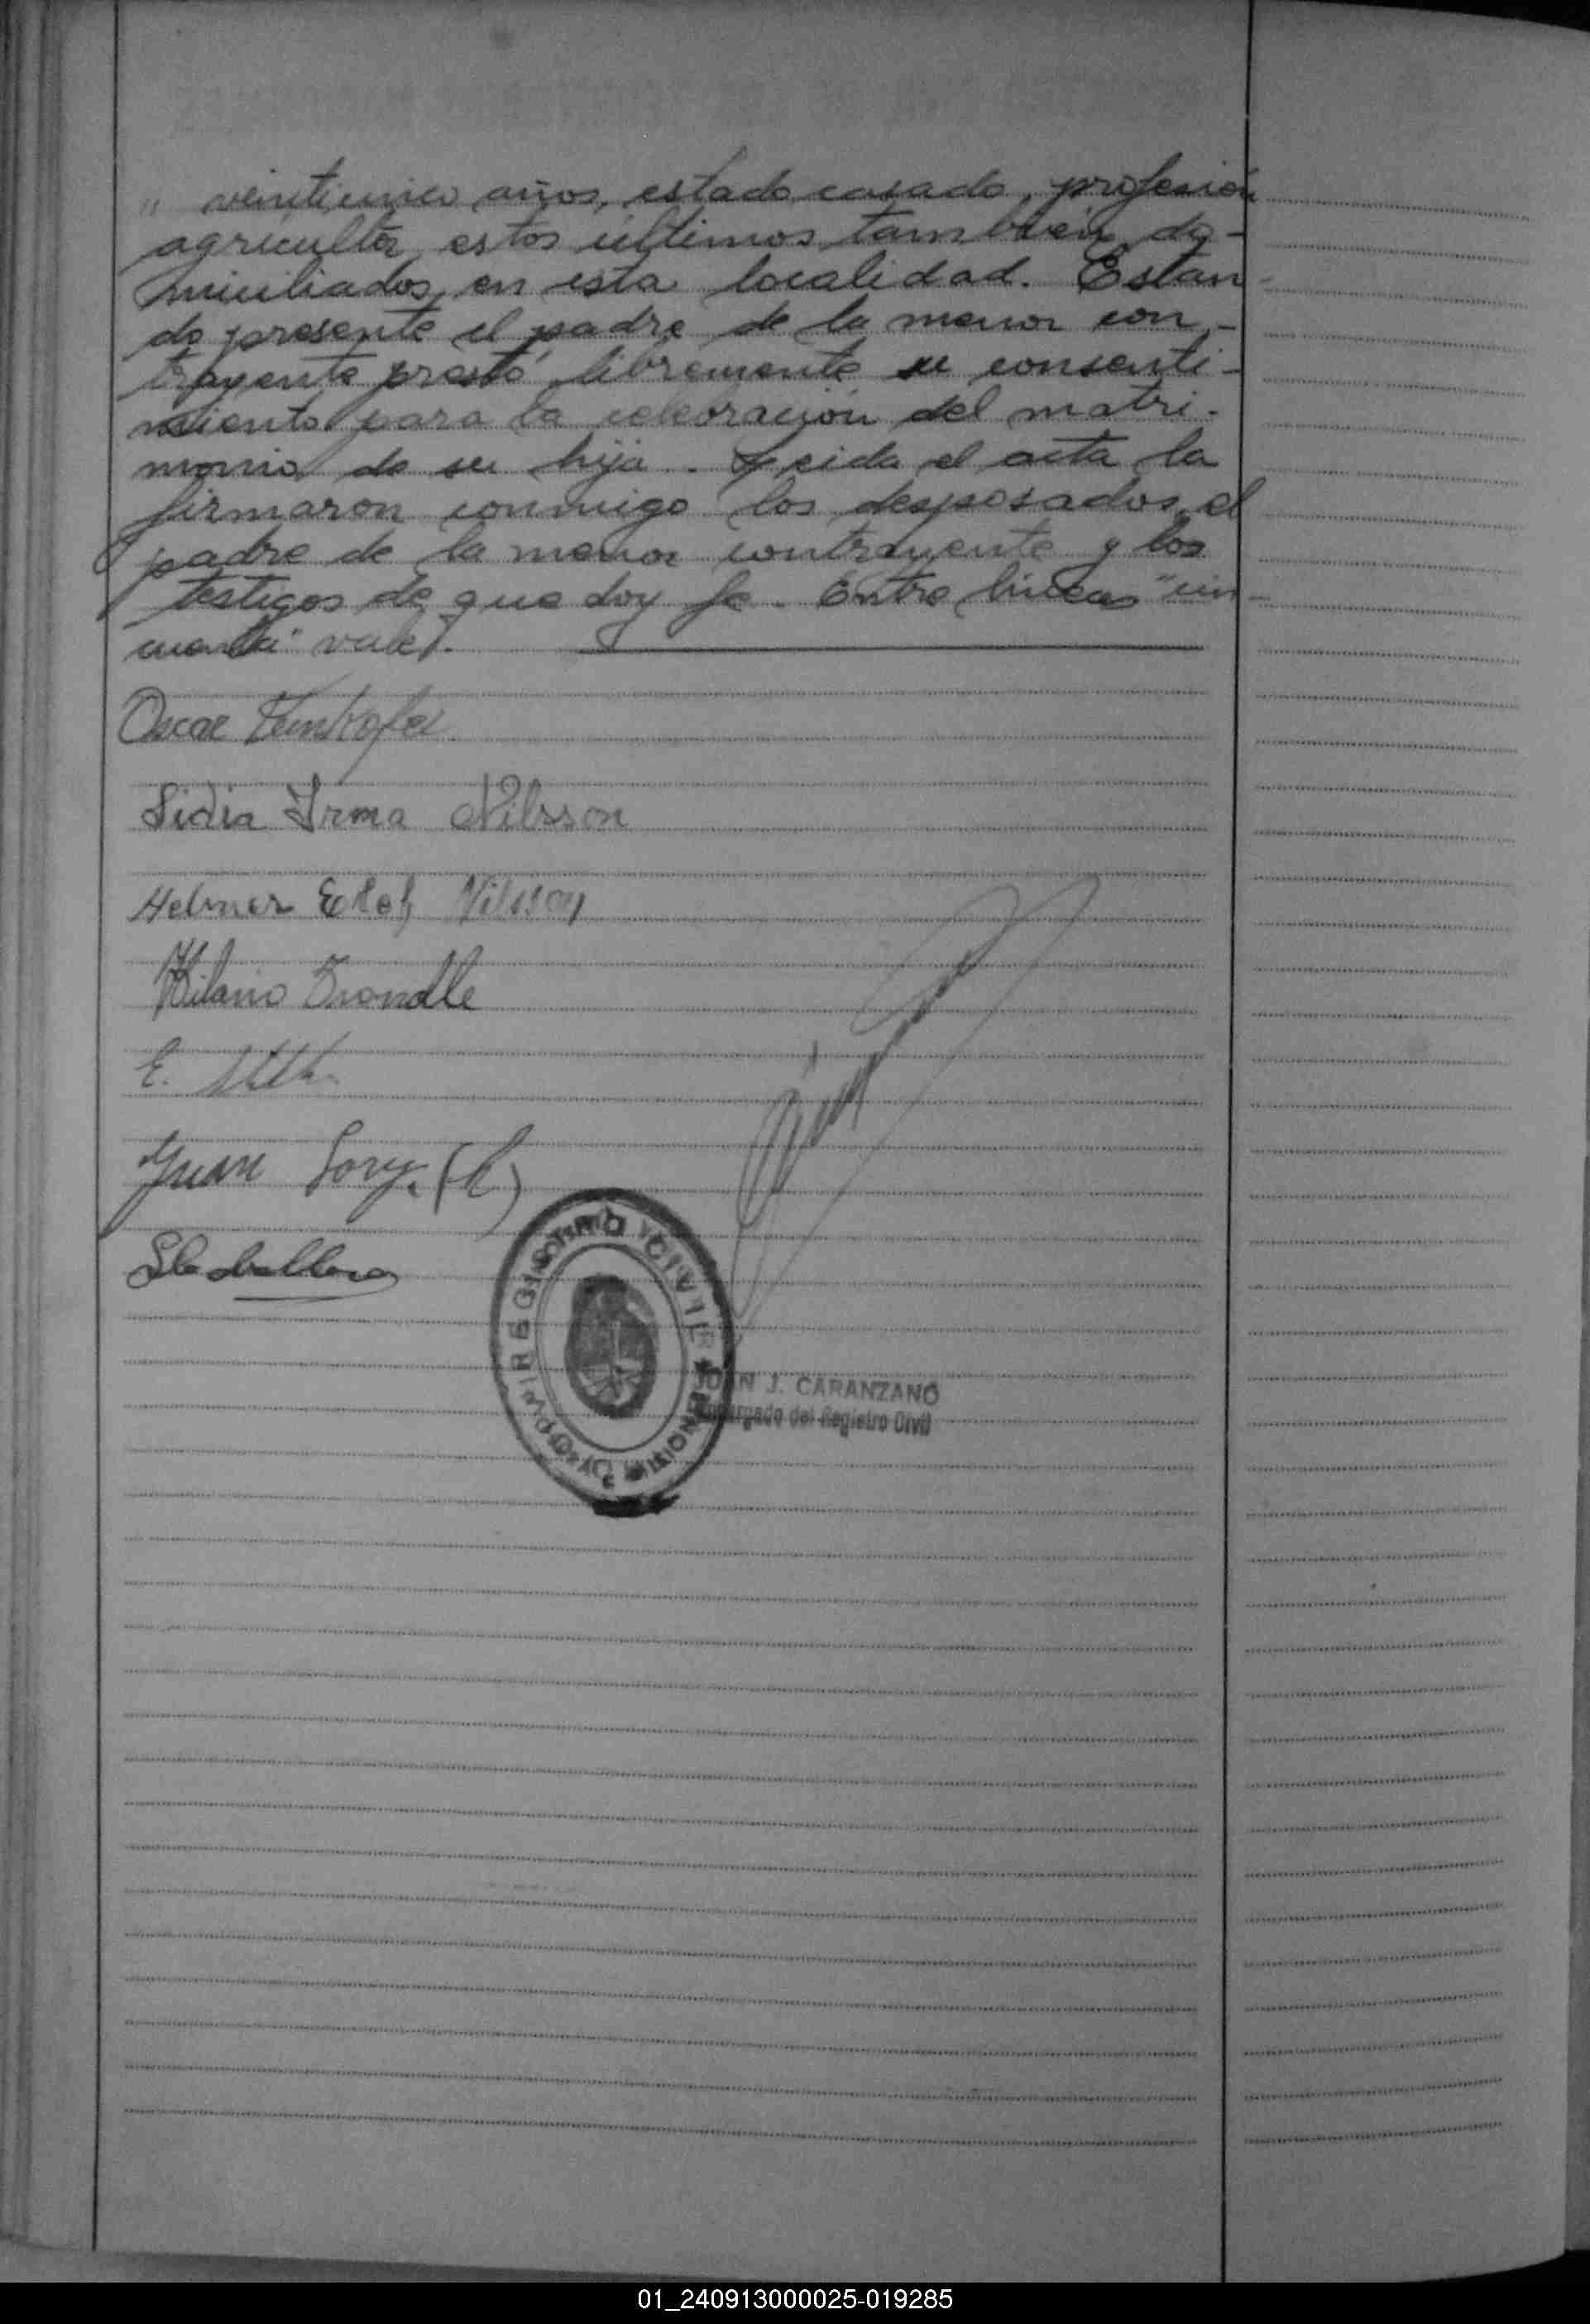 " veinticinco años, estado casado, profesión
agricultor, estos últimos también do-
miciliados en esta localidad. Estan-
do presente el padre de la menor con-
trayente prestó libremente su consenti-
miento para la celebración del matri-
monio de su hija. Leida el acta la
firmaron conmigo los desposados, el
padre de la menor contrayente y los
testigos de que doy fe. Entre lineas "cin-
cuenta" vale.
Oscar
Lidia Irma Nilsson
Helmer Nilsson
Hilario
E.
Juan Sory. (h)
REGISTRO CIVIL
MISIONES
JUAN J. CARANZANO
Encargado del Registro Civil
01_240913000025-019285